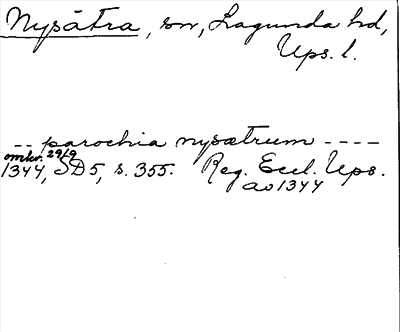 Nysätra, sn, Lagunda hd,
Ups. l.
-- parochia nysætrum ----
omkr. 29/9
1344, SD5, s. 355. Reg. Eccl. Ups.
av 1344